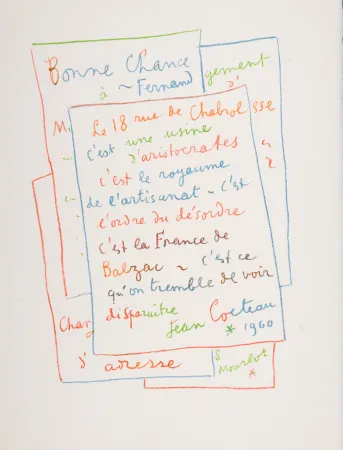 Bonne Chance
à ~ Fernand
gement
d'
Le 18 rue de Chabrol
c'est une usine
d'aristocrates
c'est le royaume
de l'artisanat ~ c'est
l'ordre du désordre
c'est la France de
Balzac ~ c'est ce
qu'on tremble de voir
disparaître
Jean Cocteau
* 1960
Chan
d'adresse
Mourlot
*